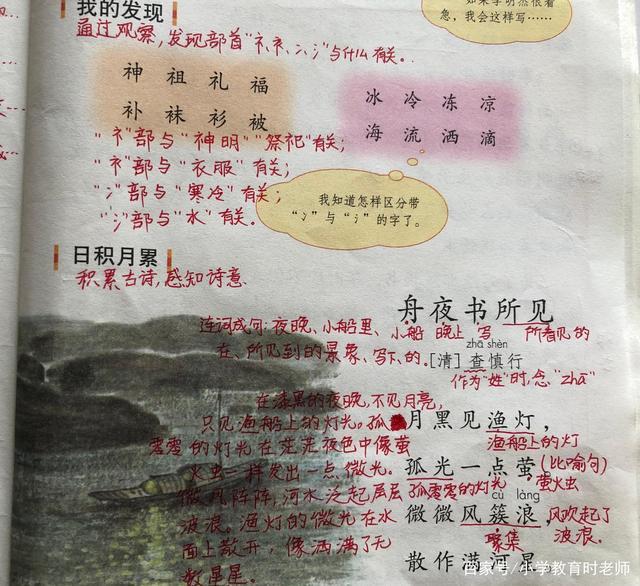 我的发现
急，我会这样写……
通过观察，发现部首“礻、衤、冫、氵”与什么有关。
神 祖 礼 福
补 袜 衫 被
冰 冷 冻 凉
海 流 洒 滴
“礻”部与“神明”“祭祀”有关；
“衤”部与“衣服”有关；
“冫”部与“寒冷”有关；
“氵”部与“水”有关。
我知道怎样区分带
“冫”与“氵”的字了。
日积月累
积累古诗，感知诗意
舟夜书所见
连词成句：夜晚、小船里、小船 晚上 写 所看见的
在、所见到的景象、写下、的。
zhā shèn
[清] 查慎行
作为“姓”时，念“zhā”
在漆黑的夜晚，不见月亮，
只见渔船上的灯光。孤
零零的灯光在茫茫夜色中像萤
火虫一样发出一点微光。
微风阵阵，河水泛起层层
波浪。渔灯的微光在水
面上散开，像洒满了无
数星星。
月黑见渔灯，
渔船上的灯
孤光一点萤。（比喻句）
孤零零的灯光 萤火虫
cù làng
微微风簇浪，
聚集
风吹起了
波浪。
散作满河星。
百家号/小学教育时老师